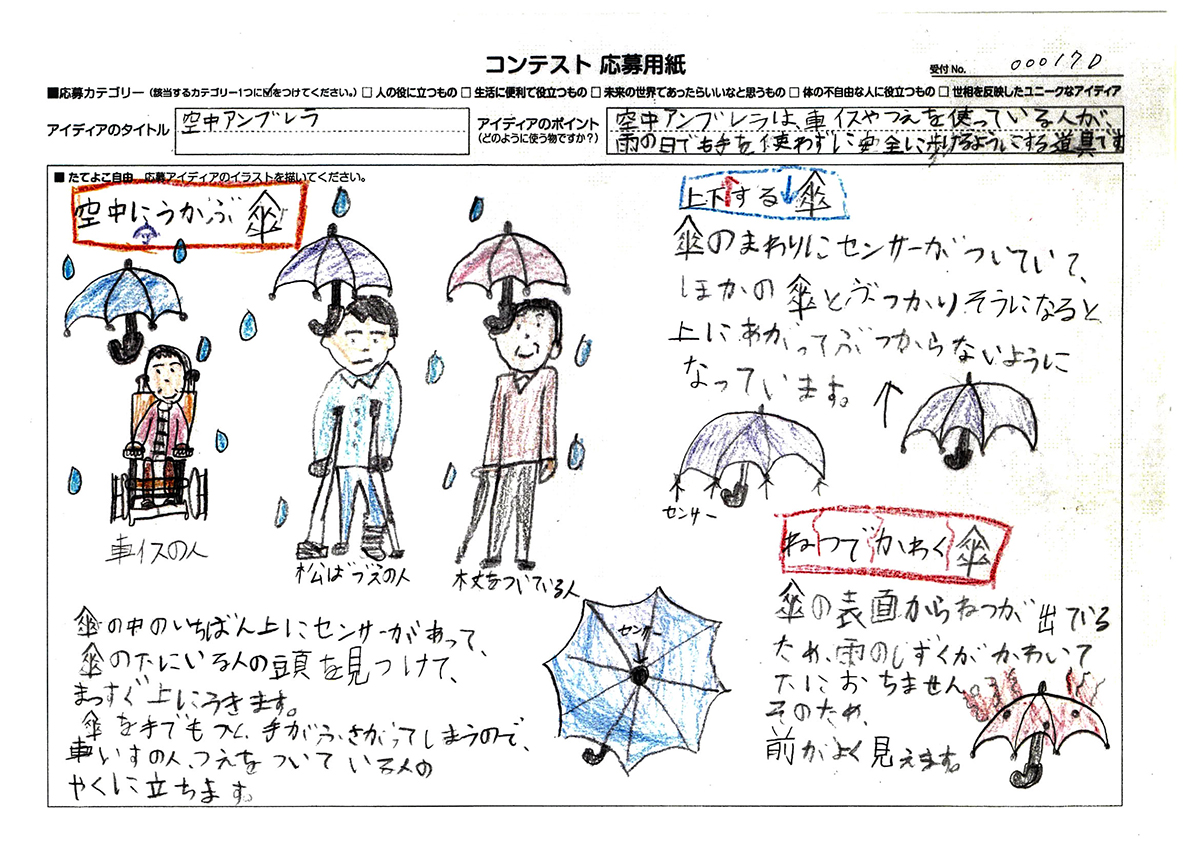 コンテスト 応募用紙
受付No. 00017D
■応募カテゴリー（該当するカテゴリー1つに☑をつけてください。）□ 人の役に立つもの □ 生活に便利で役立つもの □ 未来の世界であったらいいなと思うもの □ 体の不自由な人に役立つもの □ 世相を反映したユニークなアイディア
アイディアのタイトル 空中アンブレラ
アイディアのポイント
(どのように使う物ですか?)
空中アンブレラは、車イスやつえを使っている人が、
雨の日でも手を使わずに安全に歩けるようにする道具です
■ たてよこ自由 応募アイディアのイラストを描いてください。
空中にうかぶ傘
車イスの人
松ばづえの人
杖をついている人
傘の中のいちばん上にセンサーがあって、
傘の下にいる人の頭を見つけて、
まっすぐ上にうきます。
傘を手でもつと、手がふさがってしまうので、
車いすの人、つえをついている人の
やくに立ちます。
センサー
上下↑する↓傘
傘のまわりにセンサーがついていて、
ほかの傘とぶつかりそうになると
上にあがってぶつからないように
なっています。
↑
センサー
ねつでかわく傘
傘の表面からねつが出ている
ため、雨のしずくがかわいて
下におちません。
そのため、
前がよく見えます。